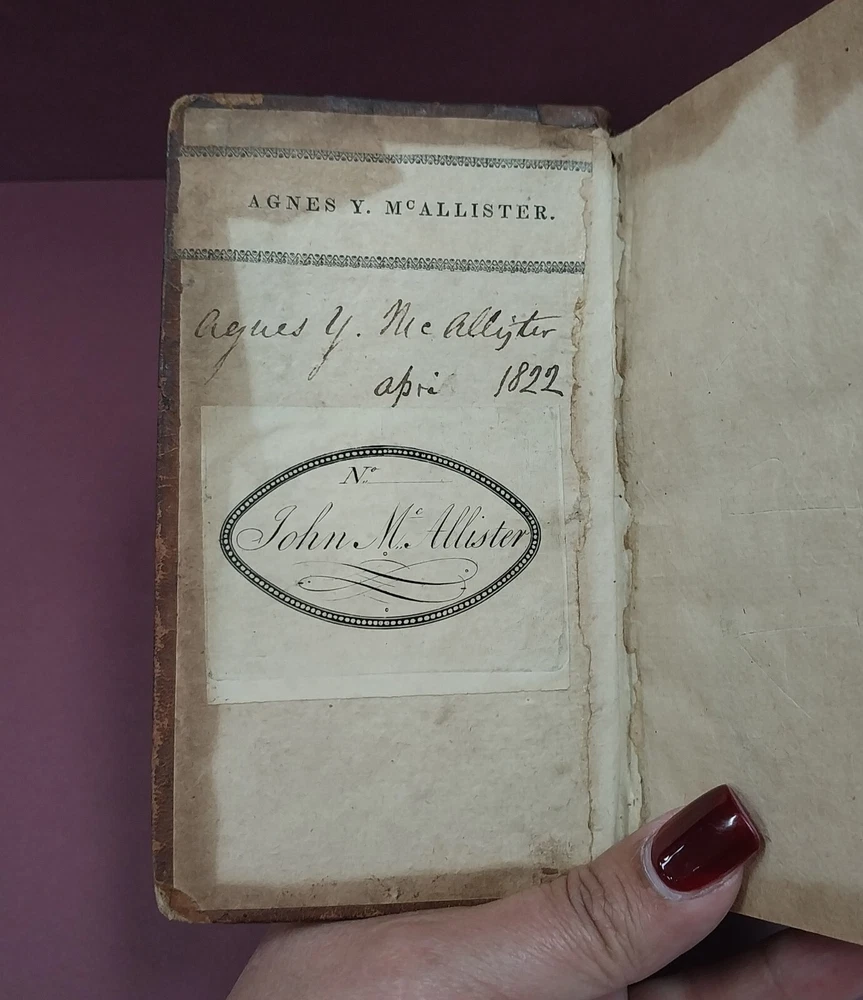 AGNES Y. McALLISTER.
Agnes Y. McAllister
apri 1822
No
John McAllister